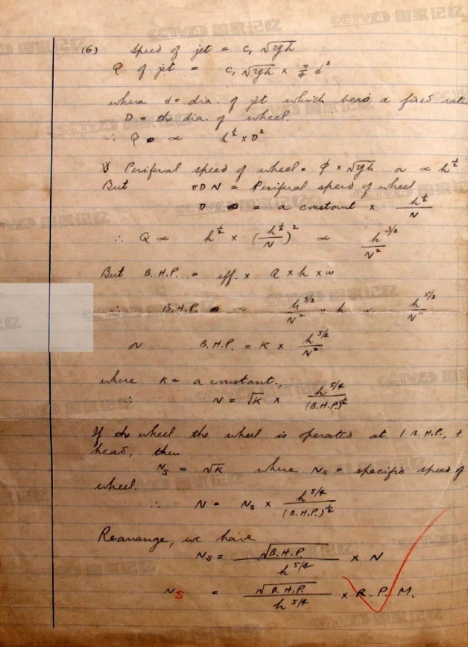 (6) Speed of jet = C₁ √2gh
Q of jet = C₁ √2gh × π/4 d²
where d = dia. of jet which bears a fixed ratio
D = the dia. of wheel.
∴ Q ∝ h^½ × D²
Periferal speed of wheel = φ × √2gh or ∝ h^½
But πDN = Periferal speed of wheel
D = a constant × h^½/N
∴ Q ∝ h^½ × (h^½/N)² ∝ h^3/2/N²
But B.H.P. = eff. × Q × h × w
∴ B.H.P. ∝ h^3/2/N² × h ∝ h^5/2/N²
or B.H.P. = K × h^5/2/N²
where K = a constant,
∴ N = √K × h^5/4/(B.H.P.)^½
If the wheel the wheel is operated at 1 B.H.P.,
head, then
Ns = √K where Ns = specific speed of
wheel.
∴ N = Ns × h^5/4/(B.H.P.)^½
Rearrange, we have
Ns = √B.H.P./h^5/4 × N
Ns = √B.H.P./h^5/4 × R.P.M.